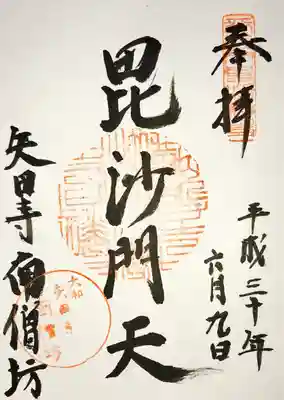 奉拝
平成三十年
六月九日
毘沙門天
矢田寺 南僧坊
大和
矢田寺